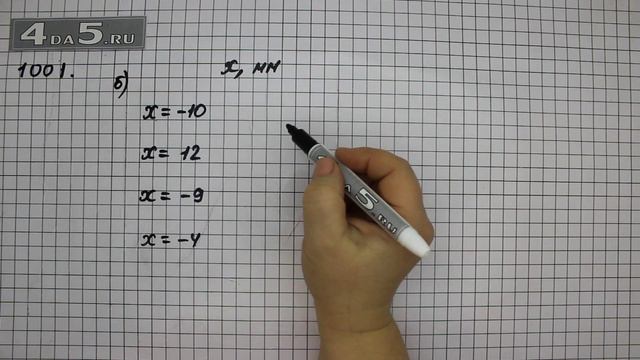 4DA5.RU
1001.
б)
x, мм
x = -10
x = 12
x = -9
x = -4
5.RU